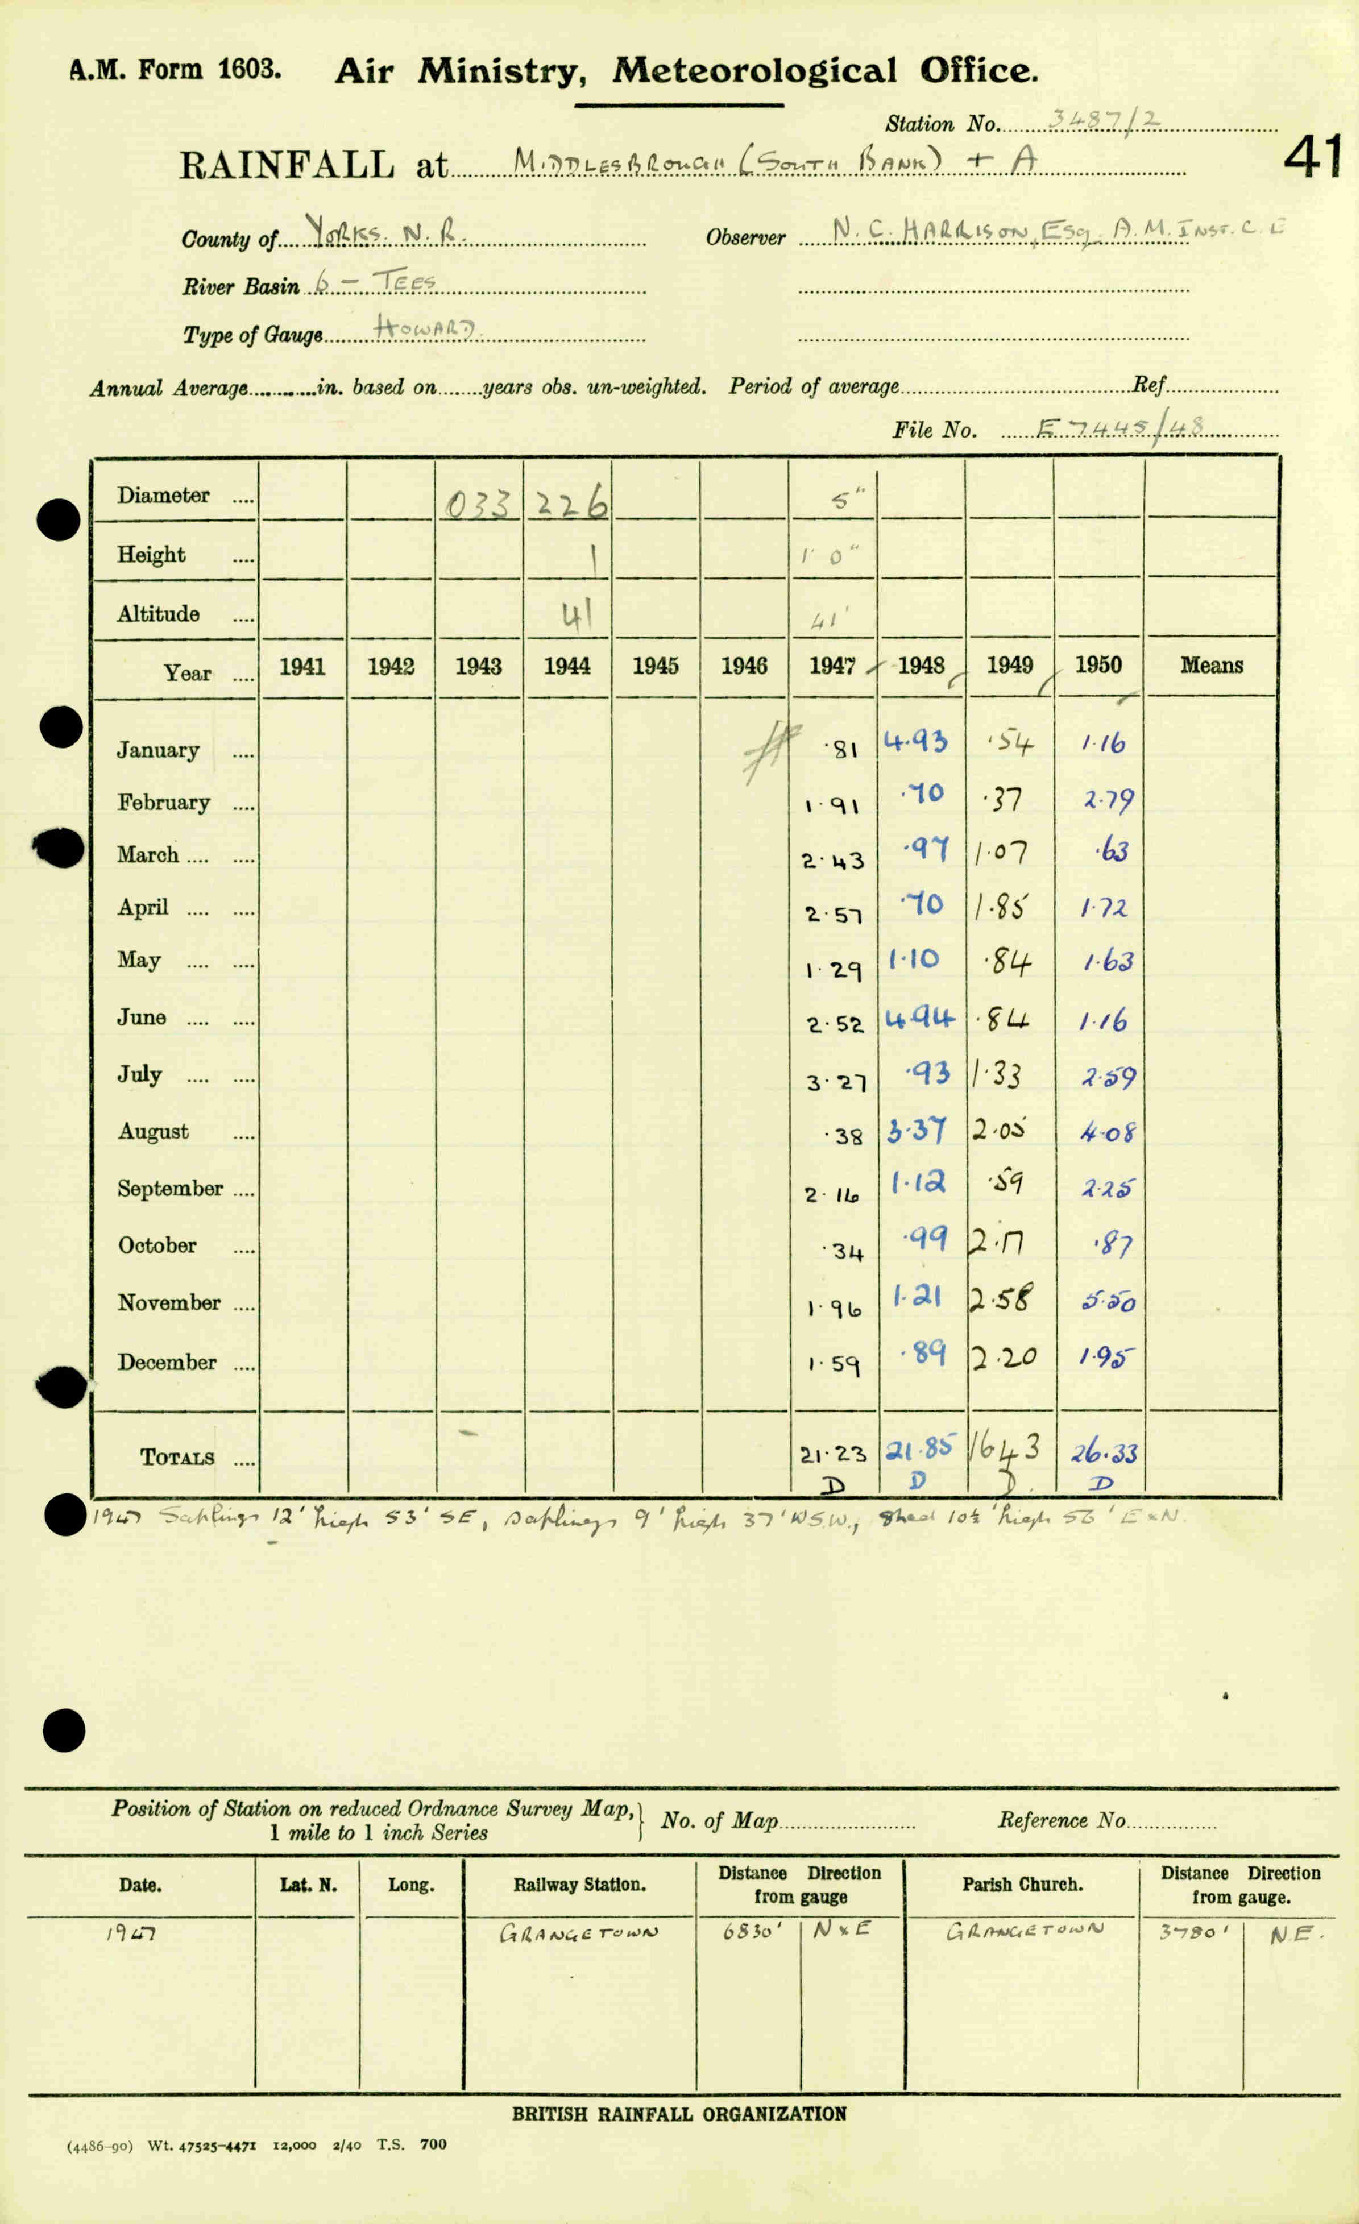 A.M. Form 1603. Air Ministry, Meteorological Office.
Station No. 3487/2
RAINFALL at MIDDLESBROUGH (SOUTH BANK) + A 41
County of YORKS. N.R. Observer N. C. HARRISON, ESQ. A.M. INST. C. E
River Basin 6 - TEES
Type of Gauge HOWARD.
Annual Average in. based on years obs. un-weighted. Period of average Ref.
File No. E 7445/48
Diameter .... 033 226 5"
Height .... 1 1' 0"
Altitude .... 41 41'
Year .... 1941 1942 1943 1944 1945 1946 1947 1948 1949 1950 Means
January .... ·81 4·93 ·54 1·16
February .... 1·91 ·70 ·37 2·79
March .... .... 2·43 ·97 1·07 ·63
April .... .... 2·57 ·70 1·85 1·72
May .... .... 1·29 1·10 ·84 1·63
June .... .... 2·52 4·94 ·84 1·16
July .... .... 3·27 ·93 1·33 2·59
August .... ·38 3·37 2·05 4·08
September .... 2·16 1·12 ·59 2·25
October .... ·34 ·99 2·17 ·87
November .... 1·96 1·21 2·58 5·50
December .... 1·59 ·89 2·20 1·95
TOTALS .... 21·23 21·85 1643 26·33
D D D. D
1947 Saplings 12' high 53' SE, saplings 9' high 37' WSW., Shed 10½' high 56' E x N.
Position of Station on reduced Ordnance Survey Map, 1 mile to 1 inch Series } No. of Map Reference No.
Date. Lat. N. Long. Railway Station. Distance Direction from gauge Parish Church. Distance Direction from gauge.
1947 GRANGETOWN 6830' N x E GRANGETOWN 3780' N.E.
BRITISH RAINFALL ORGANIZATION
(4486-90) Wt. 47525-4471 12,000 2/40 T.S. 700